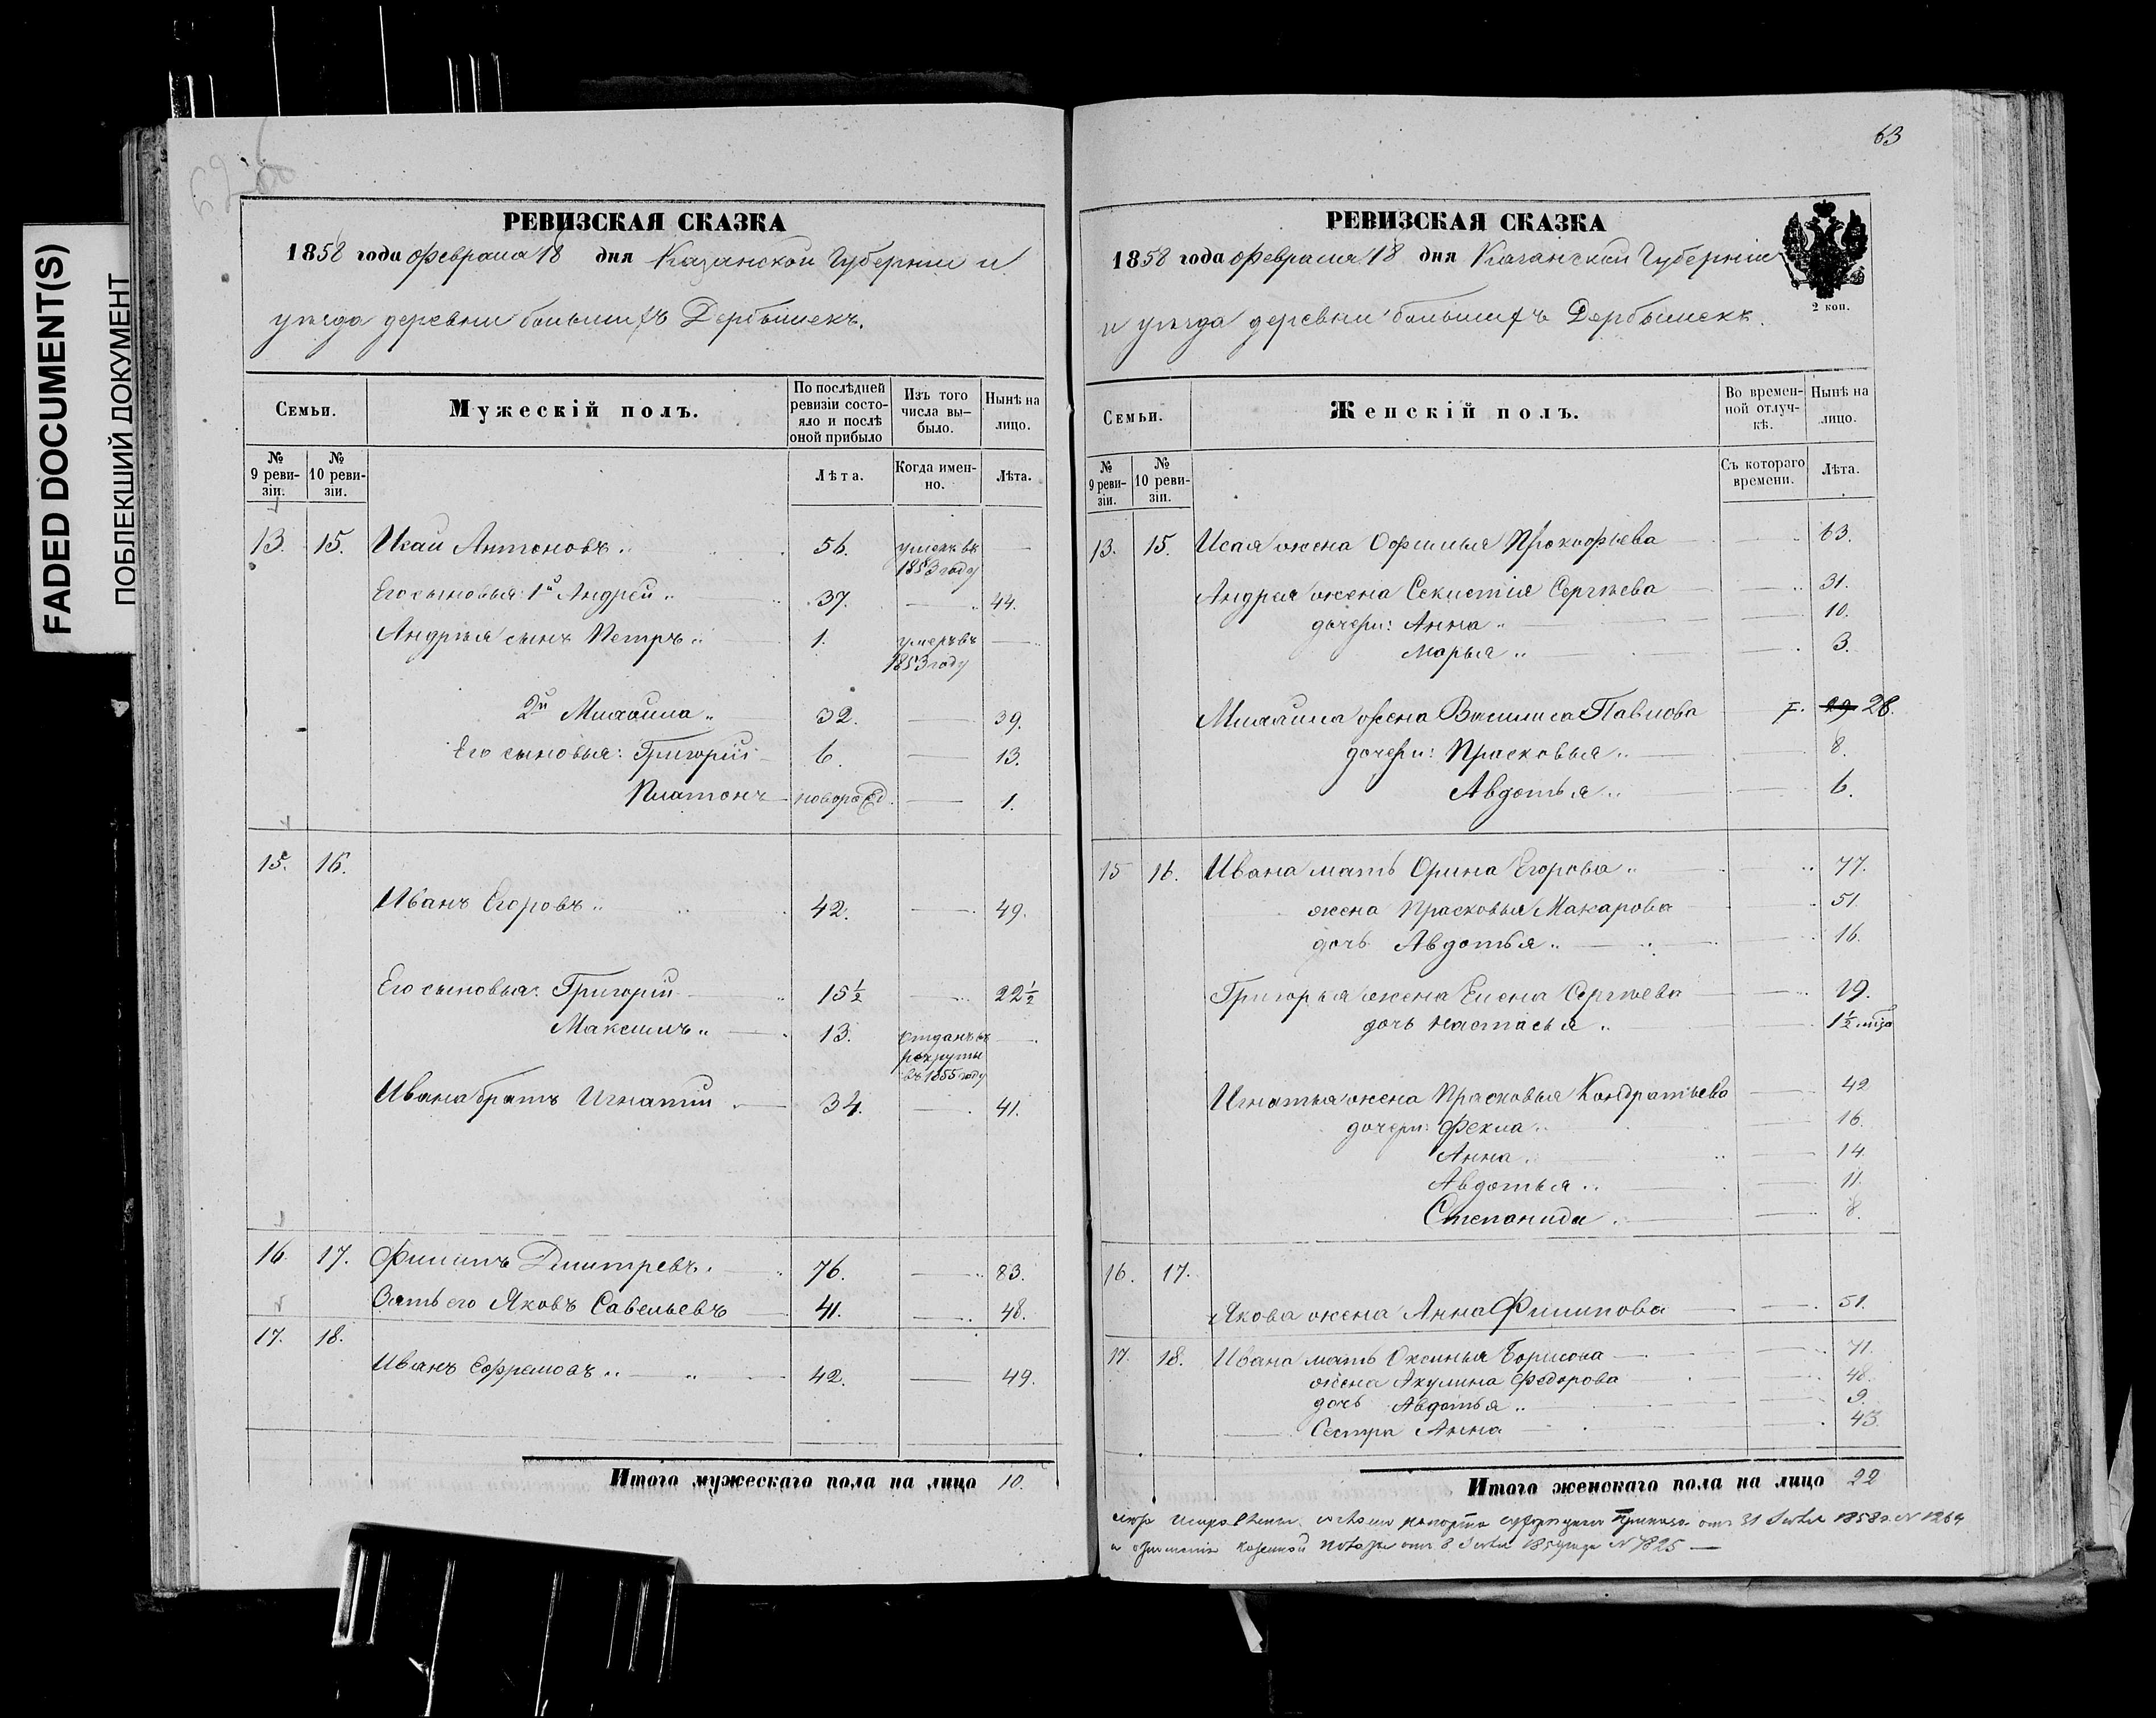 FADED DOCUMENT(S)
ПОБЛЕКШИЙ ДОКУМЕНТ
РЕВИЗСКАЯ СКАЗКА
1858 года Февраля 18 дня Казанской Губернии и
уѣзда деревни большихъ Дербышекъ.
Семьи.
Мужескій полъ.
По послѣдней ревизіи состояло и послѣ оной прибыло
Изъ того числа выбыло.
Нынѣ на лицо.
№ 9 ревизіи.
№ 10 ревизіи.
Лѣта.
Когда именно.
Лѣта.
13. 15. Исай Антоновъ 56. умеръ въ 1853 году —
Его сыновья: 1й Андрей 37. — 44.
Андрѣя сынъ Петръ 1. умеръ въ 1853 году —
2й Михайла 32. — 39.
Его сыновья: Григорій 6. — 13.
Платонъ новорожд. — 1.
15. 16.
Иванъ Егоровъ 42. — 49.
Его сыновья: Григорій 15½ — 22½
Максимъ 13. отданъ въ рекруты въ 1855 году —
Ивана братъ Игнатій 34. — 41.
16. 17. Филипъ Дмитревъ 76. — 83.
Зять его Яковъ Савельевъ 41. — 48.
17. 18.
Иванъ Ефремовъ 42. — 49.
Итого мужескаго пола на лицо 10.
63
РЕВИЗСКАЯ СКАЗКА
1858 года Февраля 18 дня Казанской Губерніи
и уѣзда деревни большихъ Дербышекъ.
2 коп.
Семьи.
Женскій полъ.
Во временной отлучкѣ.
Нынѣ на лицо.
№ 9 ревизіи.
№ 10 ревизіи.
Съ котораго времени.
Лѣта.
13. 15. Исая жена Софимья Прокофьева — 63.
Андрея жена Секистія Сергѣева — 31.
дочери: Анна — 10.
Марья — 3.
Михайла жена Василиса Павлова — 29 28.
дочери: Прасковья — 8.
Авдотья — 6.
15 16. Ивана мать Орина Егорова — 77.
жена Прасковья Макарова — 51.
дочь Авдотья — 16.
Григорья жена Елена Сергѣева — 19.
дочь Настасья — 1½ года
Игнатья жена Прасковья Кондратьева — 42
дочери: Фекла — 16.
Анна — 14.
Авдотья — 11.
Степанида — 8.
16. 17.
Якова жена Анна Филипова — 51.
17. 18. Ивана мать Оксинья Борисова — 71.
жена Акулина Федорова — 48.
дочь Авдотья — 9.
Сестра Анна — 43.
Итого женскаго пола на лицо 22
1858 г. № 1264
№ 7825 —